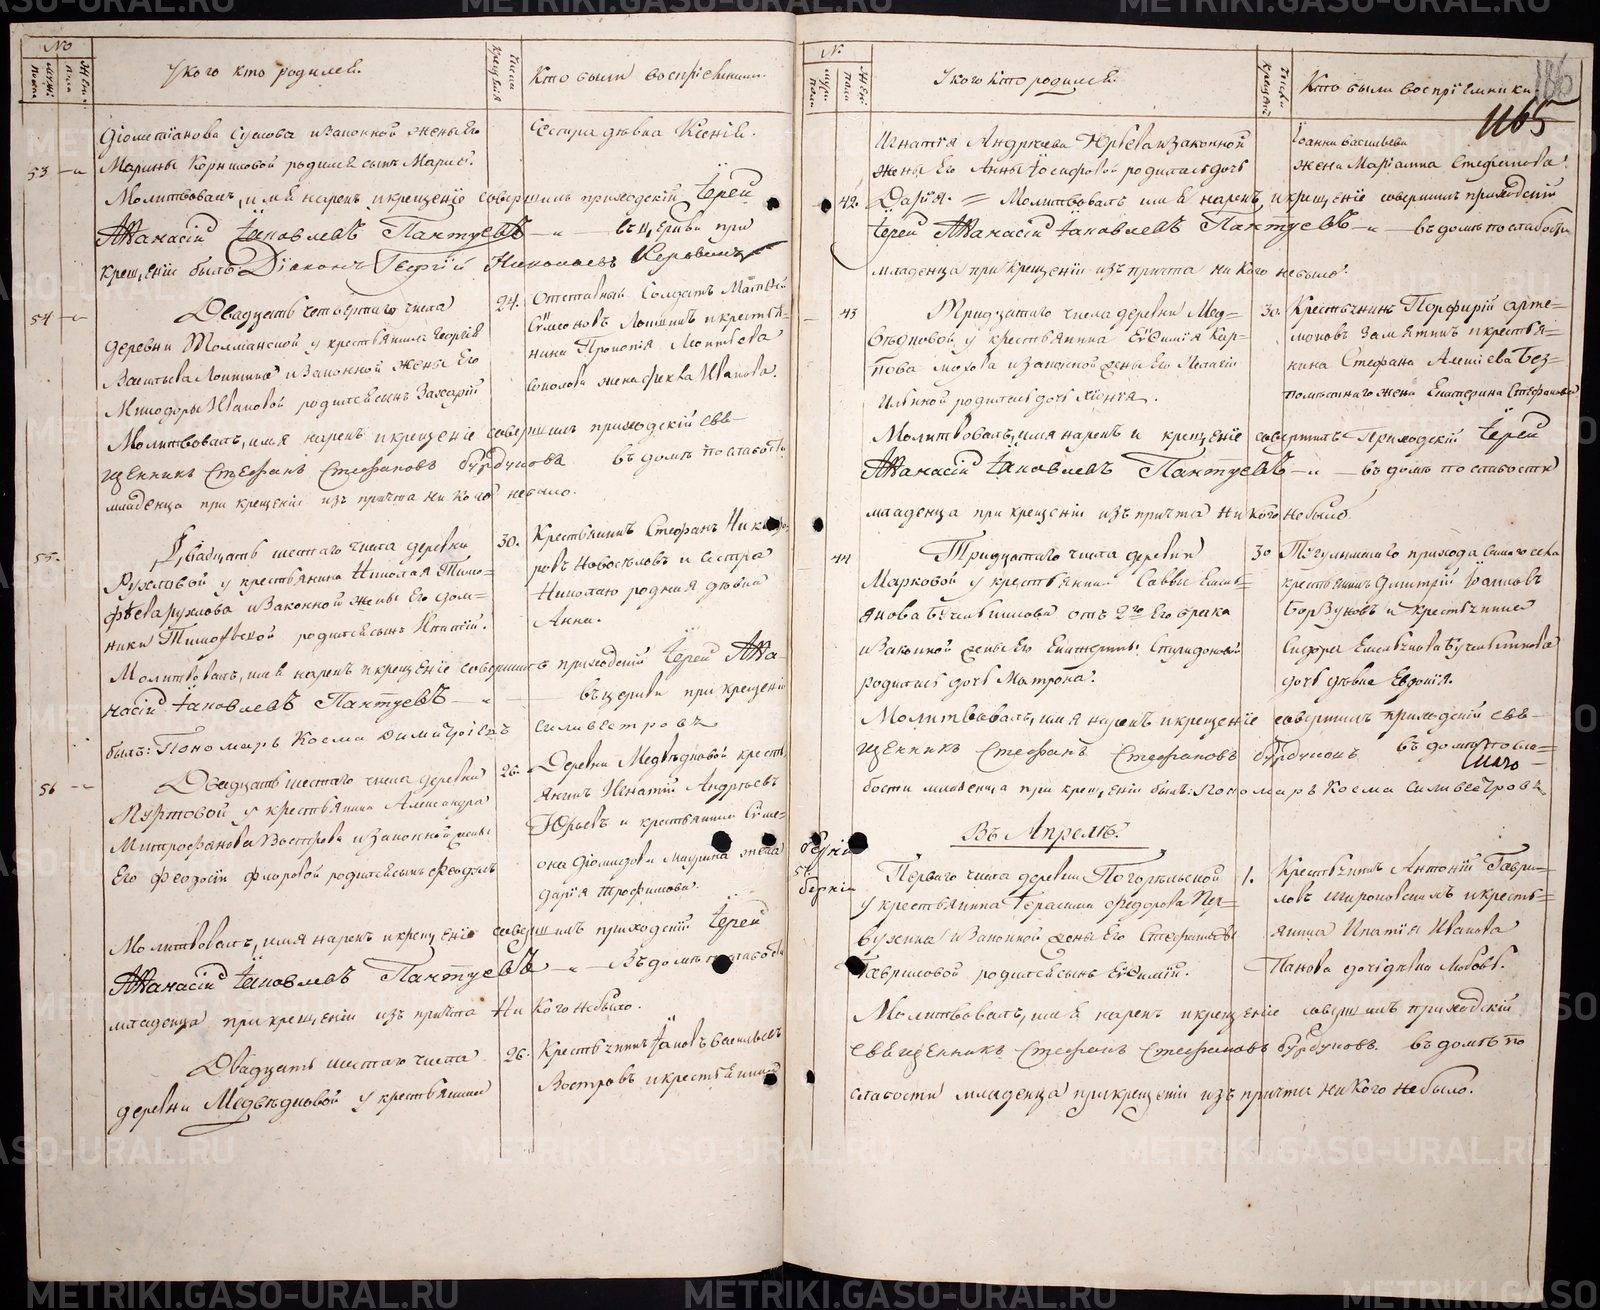 №
мужск пола
У кого кто родился.
Число крещенія
Кто были воспріемники.
53
Сусловa и законной жены его
Марины Корниловой родился сынъ
Сестра дѣвка Ксенія.
Молитвовалъ, имя нарекъ и крещеніе совершилъ приходскій Іерей
Аѳанасій Іаковлевъ Пантуевъ — въ церкви при
крещеніи былъ Діаконъ Георгій Николаевъ
54
Двадцать четвертаго числа
деревни у крестьянина Георгія
Васильева и законной жены его
Минодоры Ивановой родился сынъ Захарій
24.
Отставный Солдатъ Матвѣй
Сѵмеоновъ и крестья-
нина Прокопія
Соколова жена Ѳекла Иванова.
Молитвовалъ, имя нарекъ и крещеніе совершилъ приходскій свя-
щенникъ Стефанъ Стефановъ Бурдуковъ въ домѣ по слабости
младенца при крещеніи изъ причта ни кого небыло.
55.
Двадцать шестаго числа деревни
Рухловой у крестьянина Николая Тимо-
фѣева Рухлова и законной жены его Дом-
ники Тимофѣевой родился сынъ Ипатій.
30.
Крестьянинъ Стефанъ Никифо-
ровъ Новоселовъ и сестра
Николаю родная дѣвка
Анна.
Молитвовалъ, имя нарекъ и крещеніе совершилъ приходскій Іерей Аѳа-
насій Іаковлевъ Пантуевъ — въ церкви при крещеніи
былъ: Пономарь Косма Димитріевъ Сильвестровъ
56
Двадцать шестаго числа деревни
Пуртовой у крестьянина Александра
Митрофанова Вострова и законной жены
его Феодосіи Флоровой родился сынъ Феодулъ
26.
Деревни Медвѣдковой кресть-
янинъ Игнатій Андреевъ
Юрьевъ и крестьянина Сѵме-
она жена
Дарія Трофимова.
Молитвовалъ, имя нарекъ и крещеніе совершилъ приходскій Іерей
Аѳанасій Іаковлевъ Пантуевъ — въ домѣ по слабости
младенца при крещеніи изъ причта ни кого небыло.
Двадцать шестаго числа
деревни Медвѣдковой у крестьянина
26.
Крестьянинъ Іаковъ Васильевъ
Востровъ и крестьянина
№
У кого кто родился.
Число крещенія
Кто были воспріемники
186
1165
Игнатія Андреева Юрьева и законной
жены его Анны Іосифовой родилась дочь
42.
Дарія. = Молитвовалъ имя нарекъ и крещеніе совершилъ приходскій
Іоанна Васильева
жена Маріамна Стефанова.
Іерей Аѳанасій Іаковлевъ Пантуевъ — въ домѣ по слабости
младенца при крещеніи изъ причта ни кого небыло.
43
Тридцатаго числа деревни Мед-
вѣдковой у крестьянина Евѳимія Кар-
пова и законной жены его Пелагіи
Ильиной родилась дочь Хіонія.
30.
Крестьянинъ Порфирій Арте-
моновъ Замятинъ и крестья-
нина Стефана Алексіева Без-
жена Екатерина Стефанова
Молитвовалъ, имя нарекъ и крещеніе совершилъ Приходскій Іерей
Аѳанасій Іаковлевъ Пантуевъ — въ домѣ по слабости
младенца при крещеніи изъ причта ни кого небыло.
44
Тридцатаго числа деревни
Марковой у крестьянина Саввы Емель-
янова отъ 2го его брака
и законной жены его Екатерины Спиридоновой
родилась дочь Матрона.
30
прихода
крестьянинъ Димитрій Іоанновъ
Борзуновъ и крестьянина
Сидора Емельянова
дочь дѣвка Евдокія.
Молитвовалъ, имя нарекъ и крещеніе совершилъ приходскій свя-
щенникъ Стефанъ Стефановъ Бурдуковъ въ домѣ по сла-
бости младенца при крещеніи былъ: Пономарь Косма Сильвестровъ
Въ Апрелѣ.
57
Перваго числа деревни Погорѣльской
у крестьянина Герасима Федорова Пер-
вухина и законной жены его Стефаниды
Гавриловой родился сынъ Евѳимій.
1.
Крестьянинъ Антоній Гаври-
ловъ и кресть-
янина Ипатія Иванова
Панова дочь дѣвка Любовь.
Молитвовалъ, имя нарекъ и крещеніе совершилъ приходскій
священникъ Стефанъ Стефановъ Бурдуковъ. въ домѣ по
слабости младенца при крещеніи изъ причта ни кого небыло.
METRIKI.GASO-URAL.RU